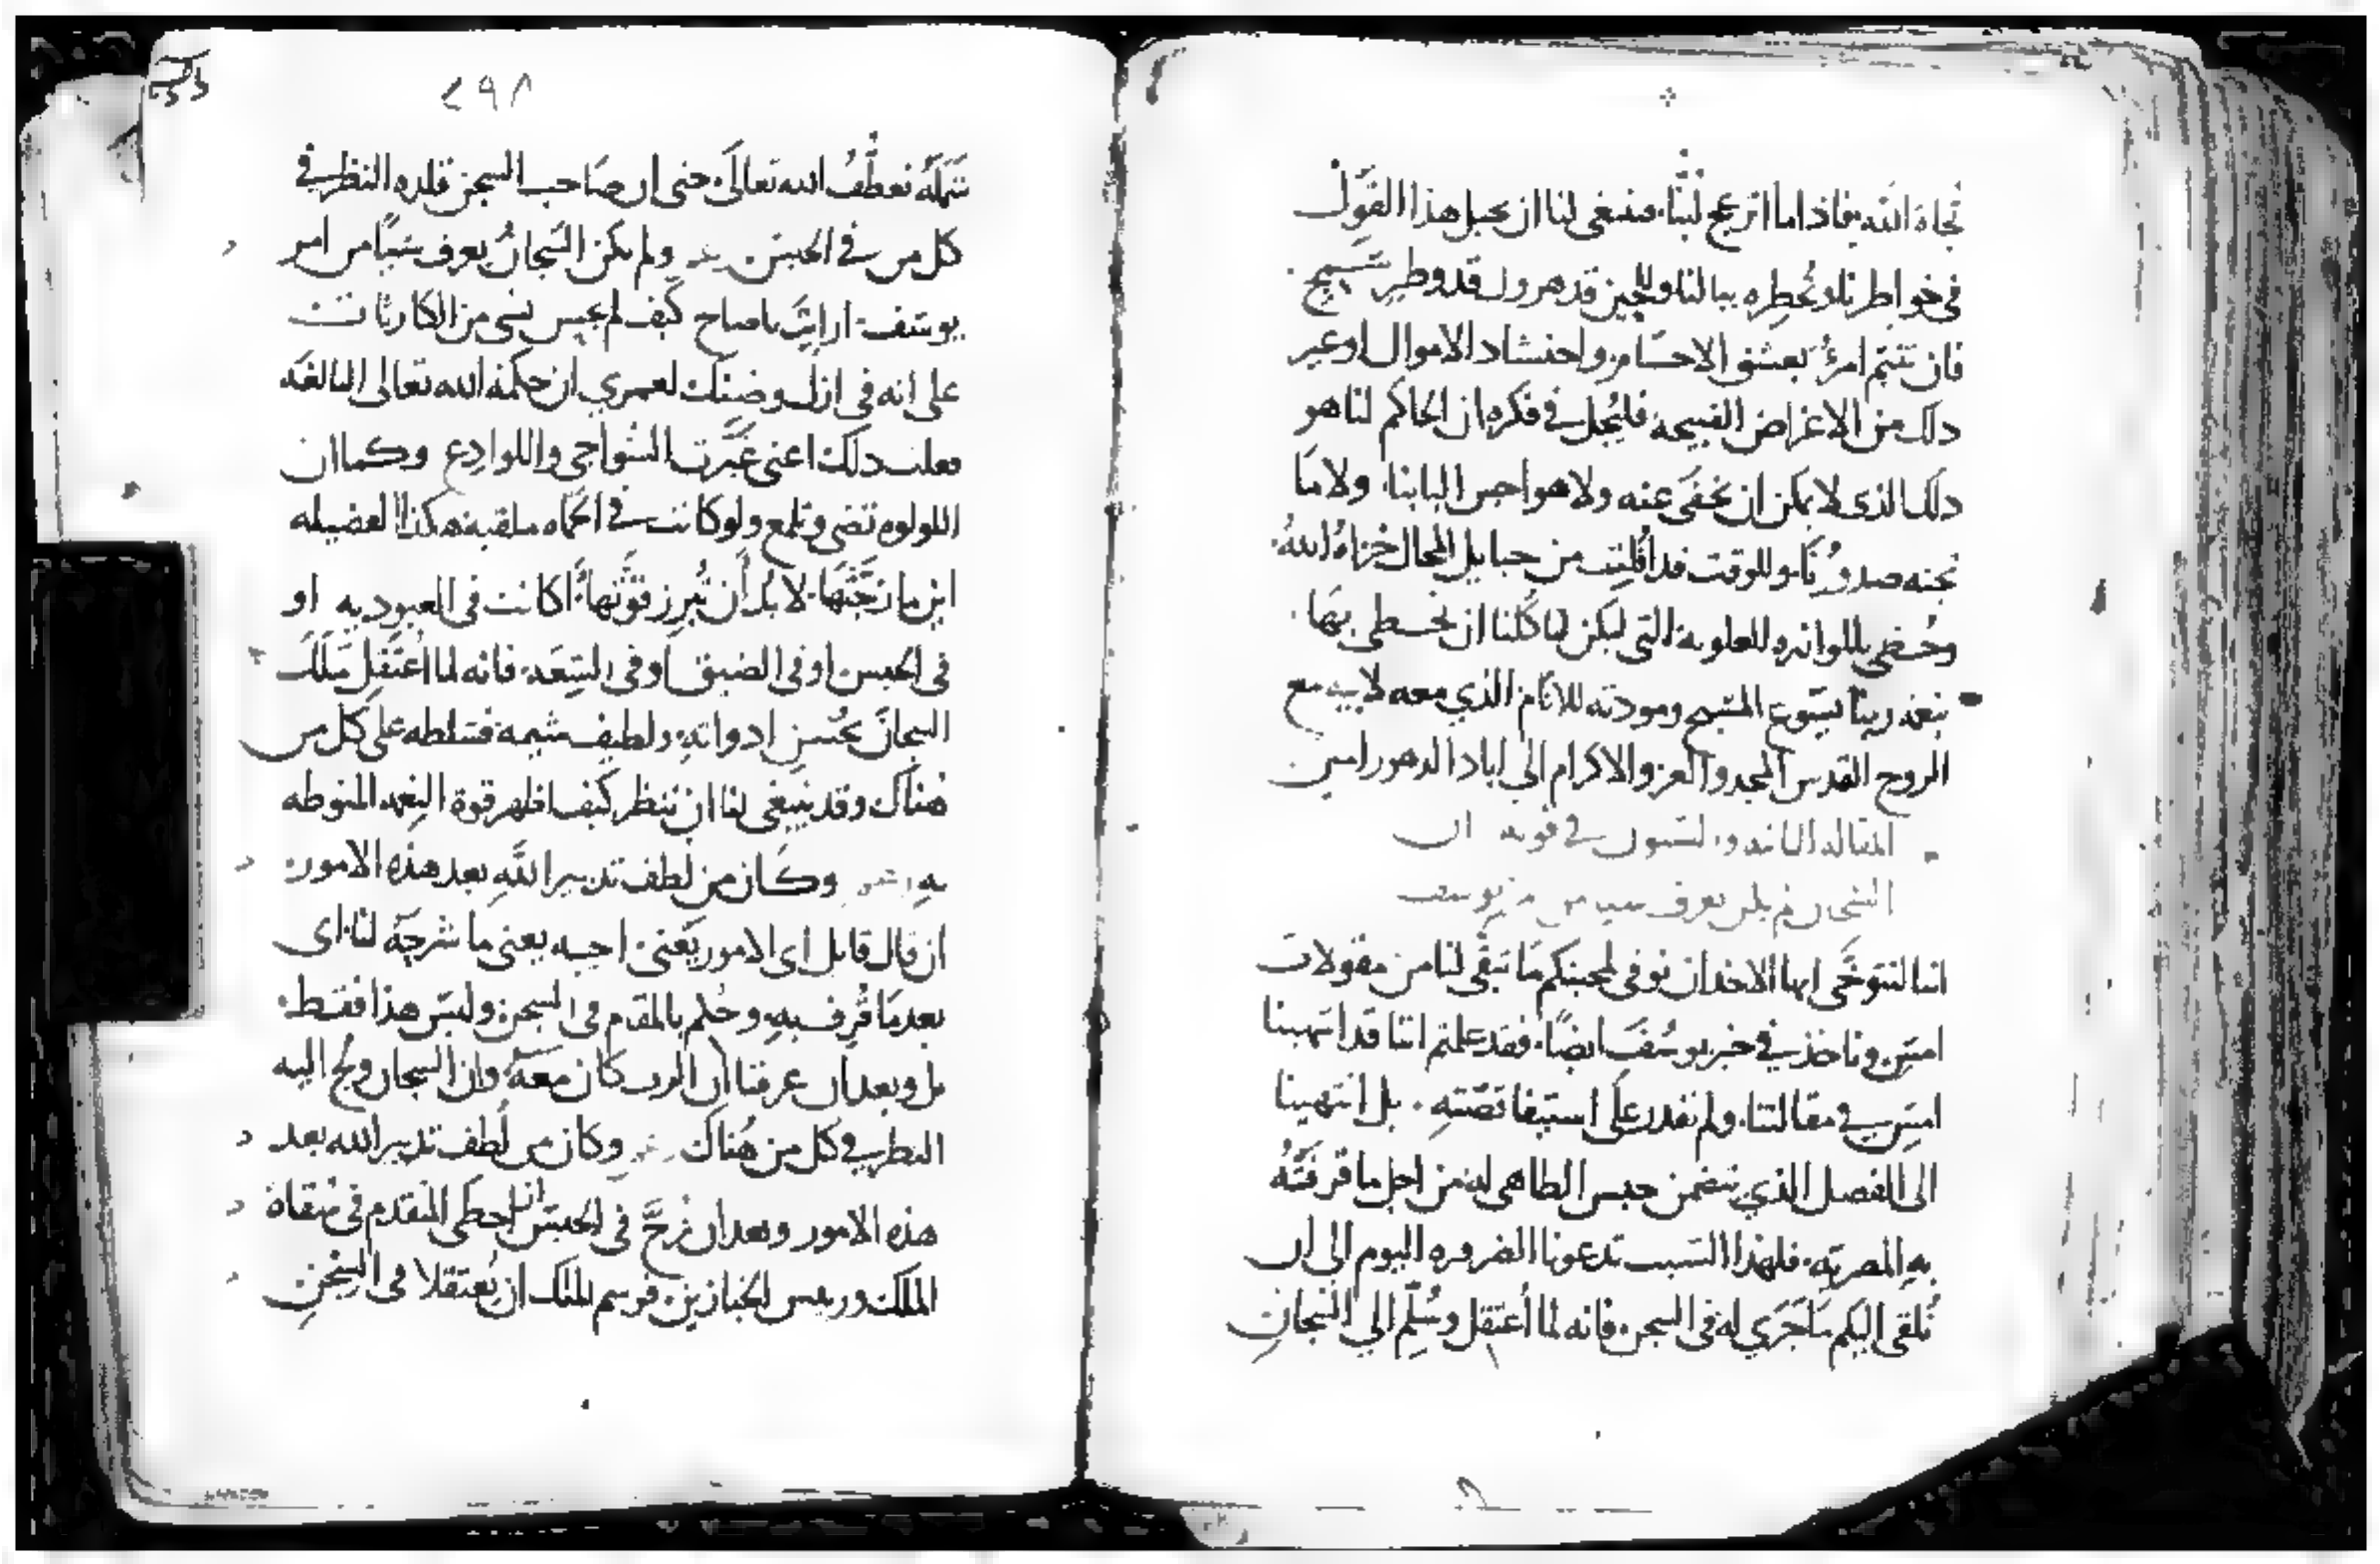 تجاه الله فاذا ما اترعج لبنا فينبغي لنا ان نجيل هذا القول
في خواطرنا ونخطره ببالنا وللحين قد هرول قد وطر سمج
فان تتيم امرؤ بعشق الاجسام واحتشاد الاموال او غير
ذلك من الاغراض القبيحه فليجل في فكره ان الحاكم لنا هو
ذلك الذي لا يمكن ان تخفى عنه ولا هواجس البابنا ولا ما
تجنه صدورنا وللوقت قد افلت من حبايل المحال خزاه الله
وحظي باللوازه العلوية التي ليكن لنا كلنا ان نحظى بها
بنعمه ربنا يسوع المسيح ومودته للانام الذي معه لابيه مع
الروح القدس المجد والعز والاكرام الي اباد الدهور امين
المقاله الثانيه والستون في قوله ان
السجان لم يكن يعرف شيا من يوسف
اننا لنتوخى ايها الاخدان نوفي لمحبتكم ما تبقى لنا من مقولات
امس وناخذ في خبر يوسف ايضًا فقد علمتم اننا قد انتهينا
امس في مقالتنا ولم نقدر على استيفا قصته بل انتهينا
الى الفصل الذي يتضمن حبس الطاهي له من اجل ما قرفته
به المصريه فلهذا السبب تدعونا الضروره اليوم الى ان
نلقى اليكم ما جرى له في السجن فانه لما أعتقل وسلم الي السجان
٢٩٨
شمله تعطف الله تعالى حتى ان صاحب السجن قلده النظر في
كل من في الحبس ولم يكن السجان يعرف شيًا من امر
يوسف ارايت ياصاح كيف لم يحبس بشي من الكارثات
على انه في ازل وضنك لعمري ان حكمة الله تعالى البالغه
فعلت ذلك اعني غيرت الشواجي واللوادع وكما ان
اللولوه تضي وتلمع ولو كانت في الحماه ملقيه هكذا الفضيله
اين ما زججتها لا بد أن تبرز قوتها اكانت في العبوديه او
في الحبس او في الضيق او في السعه فانه لما أعتقل ملك
السجان بحسن ادواته ولطيف شيمه فسلطه على كل من
هناك وقد ينبغي لنا ان ننظر كيف اظهر قوة النعمه المنوطه
به وكان من لطف تدبير الله بعد هذه الامور
ان قال قايل اي الامور يعني احبه يعني ما شرحه لنا اى
بعد ما قرف به وحكم بالمقام في السجن وليس هذا فقط
بل وبعد ان عرفنا ان الرب كان معه وان السجان ولج اليه
النظر في كل من هناك وكان من لطف تدبير الله بعد
هذه الامور وبعد ان زج في الحبس ان اخطى المتقدم في سقاة
الملك وريس الخبازين فرسم الملك ان يعتقلا في السجن